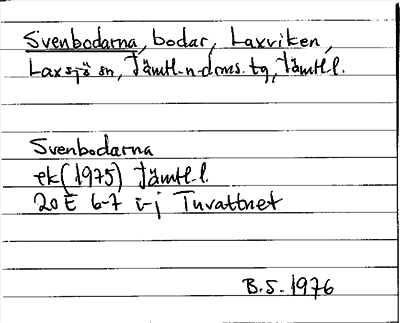 Svenbodarna, bodar, Laxviken,
Laxsjö sn, Jämtl-n-doms. tg, Jämtl.l.
Svenbodarna
ek (1975) Jämtl.l.
20E 6-7 i-j Tuvattnet
B.S. 1976